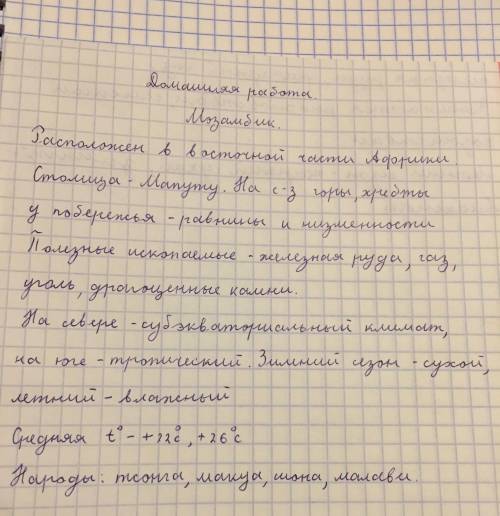 Домашняя работа.
Мозамбик.
Расположен в восточной части Африки.
Столица - Мапуту. На с-з горы, хребты
у побережья - равнины и низменности
Полезные ископаемые - железная руда, газ,
уголь, драгоценные камни.
На севере - субэкваториальный климат,
на юге - тропический. Зимний сезон - сухой,
летний - влажный
Средняя t° - +22°c, +26°c
Народы: тсонга, макуа, шона, малави.